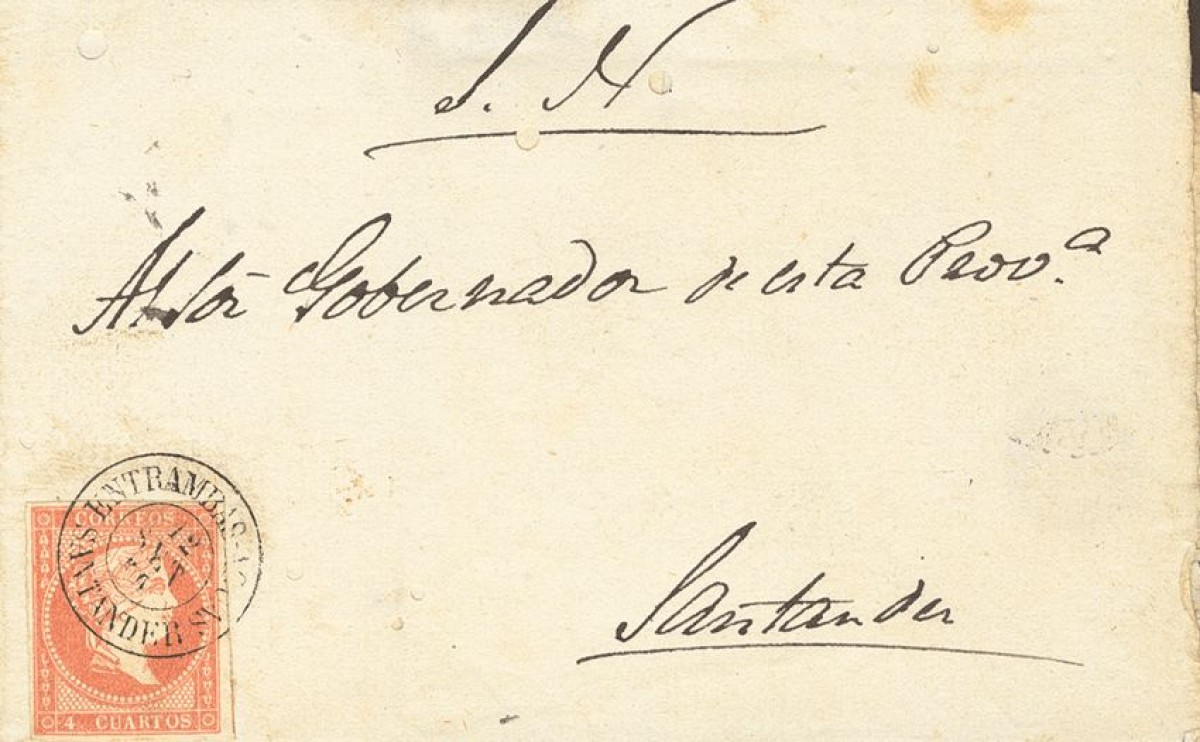 S. N.
Al Sor. Gobernador de esta Prov.ª
Santander
ENTRAMBAS
SANTANDER
12
SET
CORREOS
4 CUARTOS